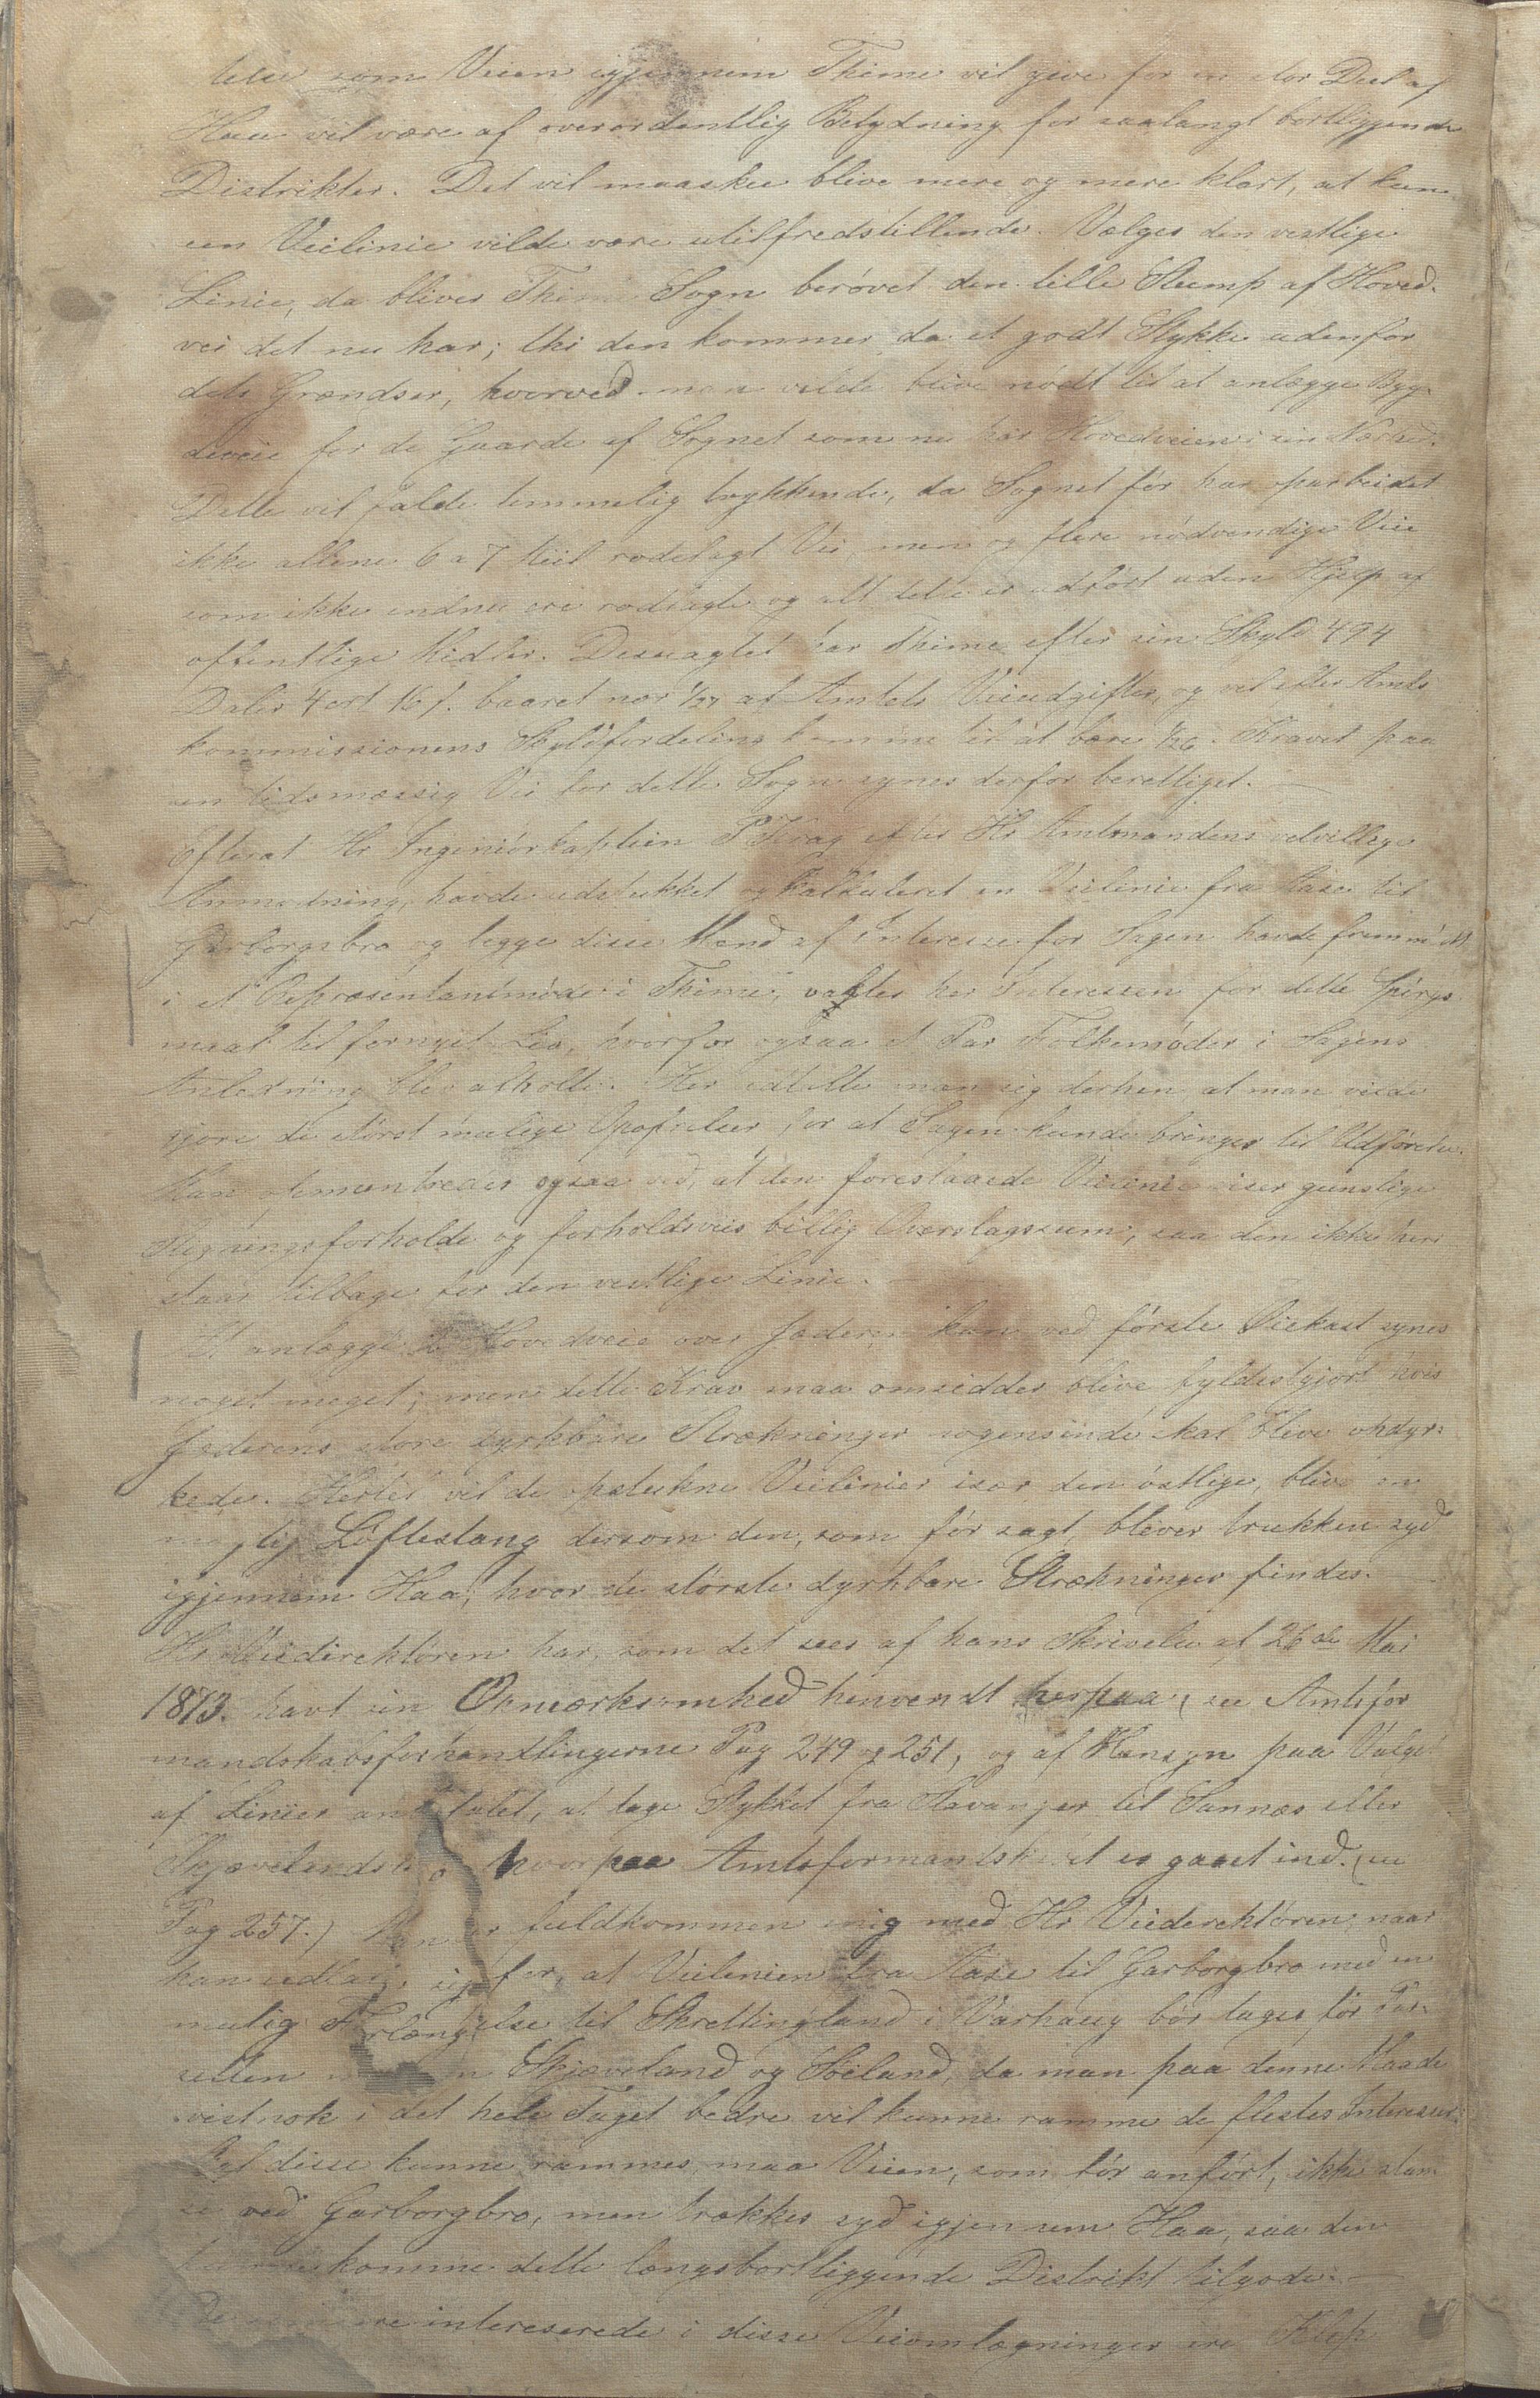 telse som Veien igjennem Thime vil give for en stor Deel af
Haa vil være af overordentlig Betydning for saalangt bortliggende
Distrikter. Det vil maaskee blive mere og mere klart, at kun
een Veilinie vilde være utilfredstillende. Vælges den vestlige
Linie, da bliver Thime Sogn berøvet den lille Stump af Hoved-
vei det nu har; thi den kommer da et godt Stykke udenfor
dets Grændser, hvorved man vilde blive nødt til at anlægge Byg-
deveie for de Gaarde af Sognet som nu har Hovedveien i sin Nærhed.
Dette vil falde temmelig trykkende, da Sognet før har oparbeidet
ikke allene 6 a 7 Miil rodelagt Vei, men og flere nødvendige Veie
som ikke endnu ere rodlagte og alt dette er udført uden Hjelp af
offentlige Midler. Desuagtet har Thime efter sin Skyld 494
Daler 4 ort 16 s. baaret nær 1/27 af Amtets Veiudgifter, og vil efter Amts
kommissionens Skyldfordeling komme til at bære 1/26. Kravet paa
en tidsmæssig Vei for dette Sogn synes derfor berettiget.
Efterat Hr Ingeniørkaptein P Krag efter Hr Amtmandens velvillige
Anmodning, havde udstukket og kalkuleret en Veilinie fra Aase til
Garborgsbro og begge disse Mænd af Interesse for Sagen havde fremmødt
i et Repræsentantmøde i Thime, vagtes her Interessen for dette Spørgs
maal til fornyet Liv, hvorfor ogsaa et Par Folkemøder i Sagens
Anledning blev afholdte. Her udtalte man sig derhen at man vilde
gjøre de størst mulige Opofrelser for at Sagen kunde bringes til Udførelse.
Man opmuntredes ogsaa ved, at den foreslaaede Veilinie viser gunstige
Stigningsforholde og forholdsvis billig Overslagssum, saa den ikke heri
staar tilbage for den vestlige Linie.
At anlægge to Hovedveie over Jæderen kan ved første Øiekast synes
noget meget; men dette Krav maa omsidder blive fyldestgjort hvis
Jæderens store dyrkbare Strækninger nogensinde skal blive opdyr-
kede. Hertil vil de opstukne Veilinier især den østlige, blive en
mægtig Løftestang dersom den, som før sagt, bliver trukken syd
igjennem Haa, hvor de største dyrkbare Strækninger findes.
Hr Veidirektøren har, som det sees af hans Skrivelse af 26de Mai
1873. havt sin Opmærksomhed henvendt herpaa (see Amtsfor
mandskabsforhandlingerne Pag 249 og 251, og af Hensyn paa Valget
af Linier anbefalet, at tage Stykket fra Stavanger til Sannæs eller
Skjævelandsbro hvorpaa Amtsformandskabet er gaaet ind. (see
Pag 257.) Man er fuldkommen enig med Hr Veidirektøren, naar
han udtaler sig for, at Veilinien fra Aase til Garborgbro med en
mulig Forlængelse til Skrettingland i Varhaug bør tages før Par-
sellen mellem Skjæveland og Søiland, da man paa denne Maade
vistnok i det hele Taget bedre vil kunne ramme de flestes Interesser.
Skal disse kunne rammes, maa Veien, som før anført, ikke stan
se ved Garborgbro, men trækkes syd igjennem Haa, saa den
kunne komme dette længstbortliggende Distrikt tilgode.
interesserede i disse Veiomlægninger ere Klep